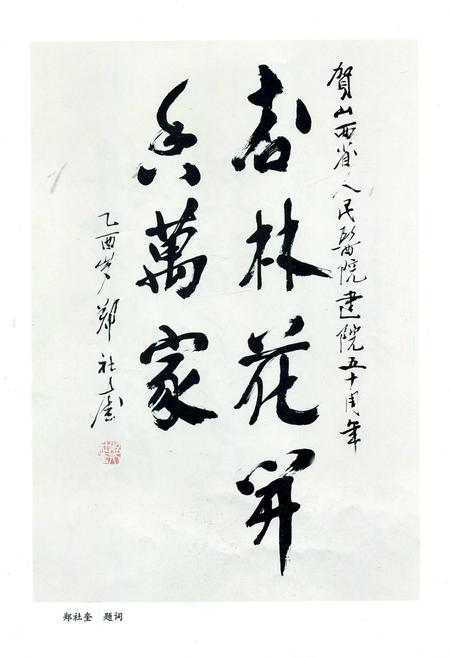 贺山西省人民醫院建院五十周年
杏林花開
香萬家
乙酉岁鄭社奎
郑社奎 题词